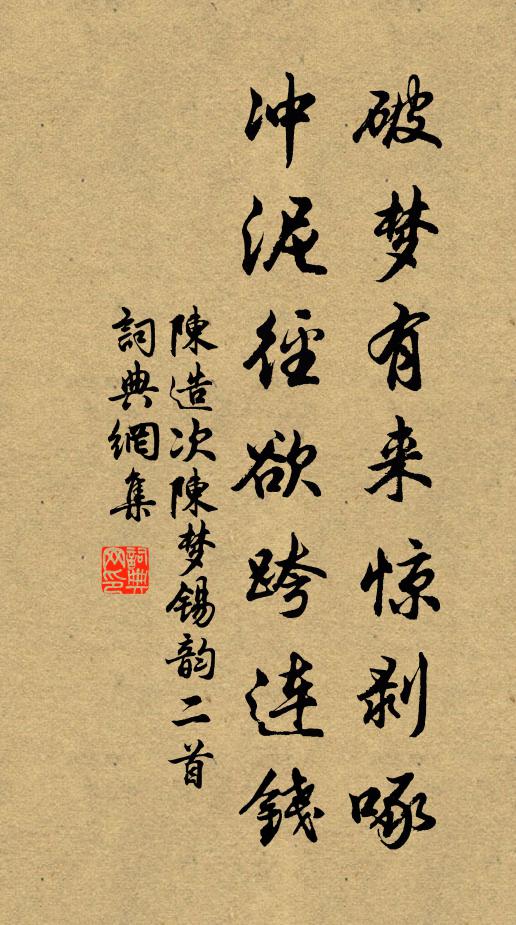 破梦有来惊剥啄
冲泥径欲跨连錢
陳造次陳梦锡韵二首
詞典網集
詞典
网印